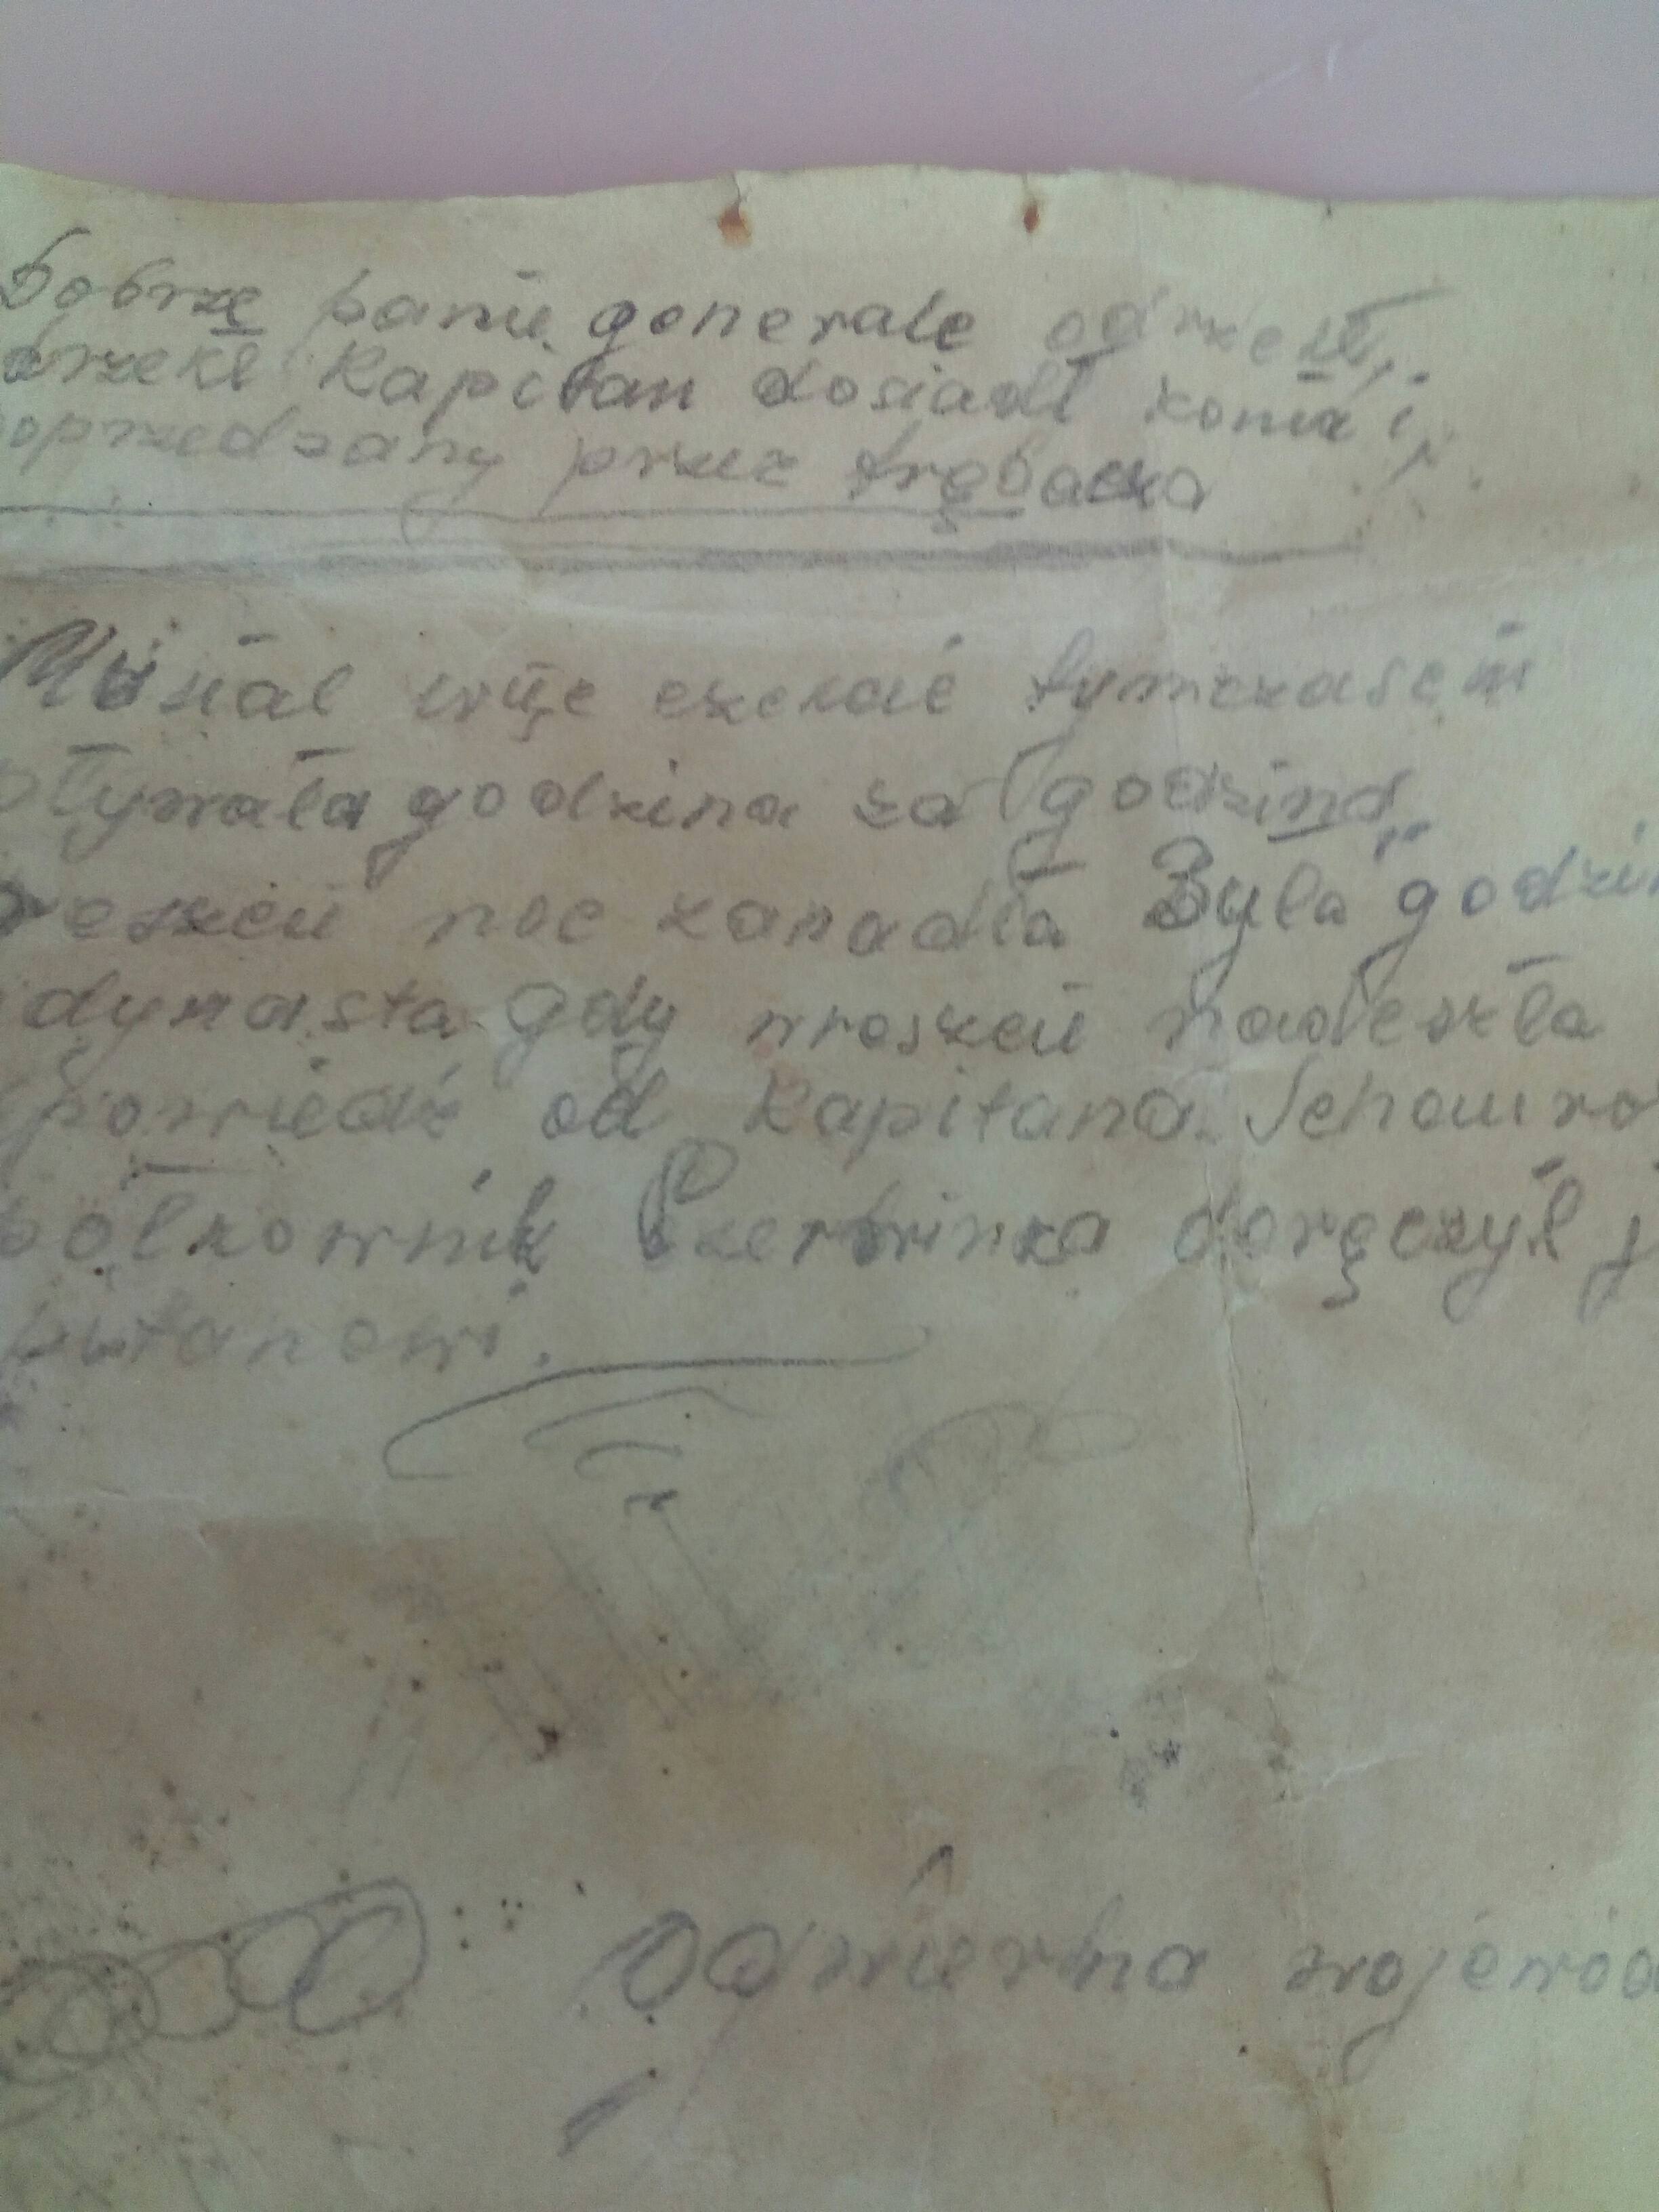 Dobrze panie generale odrzekł,
orzekł Kapitan dosiadł konia i,
oprzedzany przez trębacza
Musiał więc czekać tymczasem
płynała godzina za godziną
reszcii noc zapadła Była godzin
dynasta gdy wreszcii nadeszła
powiedź od Kapitana Schouro
półkownik Czerwinka doręczył j
pitanowi.
Odwierna wojewod